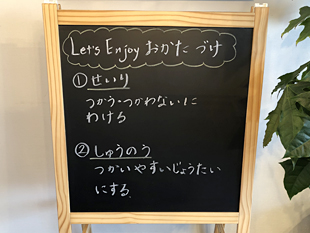 Let's Enjoy おかたづけ
①せいり
つかう・つかわないに
わける
②しゅうのう
つかいやすいじょうたい
にする